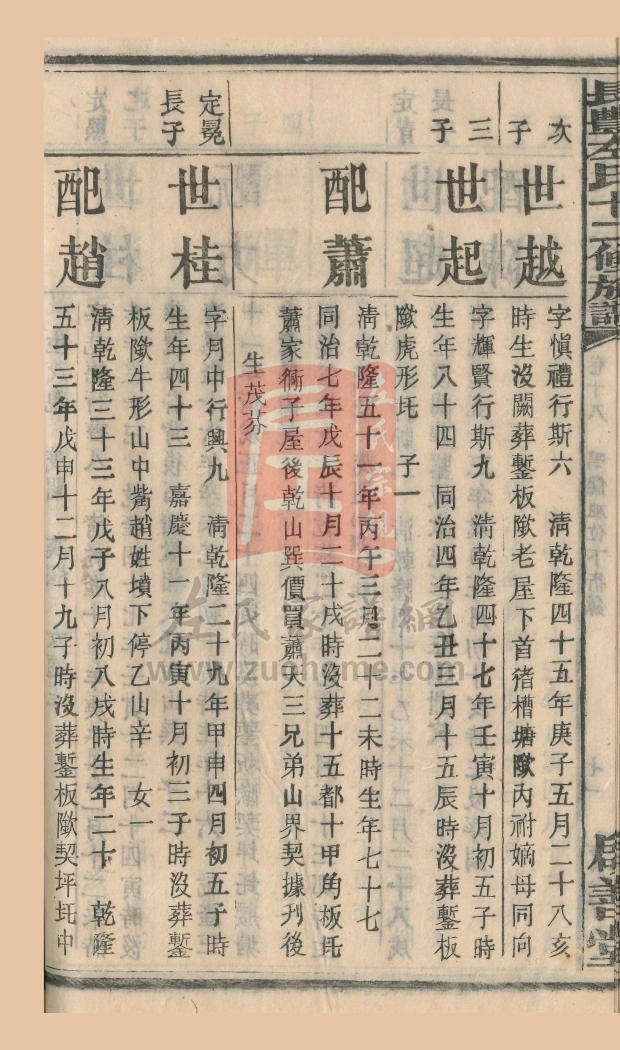 長豐左氏十二修族譜
卷十八
啟詒堂
次子
世越
字愼禮行斯六　淸乾隆四十五年庚子五月二十八亥
時生沒闕葬鏨板歘老屋下首猪槽塘歘內祔嫡母同向
三子
世起
字輝賢行斯九　淸乾隆四十七年壬寅十月初五子時
生年八十四　同治四年乙丑三月十五辰時沒葬鏨板
歘虎形圫　子一
配蕭
淸乾隆五十一年丙午三月二十二未時生年七十七
同治七年戊辰十月二十戌時沒葬十五都十甲角板圫
蕭家衕子屋後乾山巽價買蕭大三兄弟山界契據刋後
生茂芬
定冕長子
世桂
字月中行興九　淸乾隆二十九年甲申四月初五子時
生年四十三　嘉慶十一年丙寅十月初三子時沒葬鏨
板歘牛形山中觜趙姓墳下停乙山辛　女一
配趙
淸乾隆三十三年戊子八月初八戌時生年二十　乾隆
五十三年戊申十二月十九子時沒葬鏨板歘契坪圫中
左氏宗親
左氏家譜網
www.zuohome.com